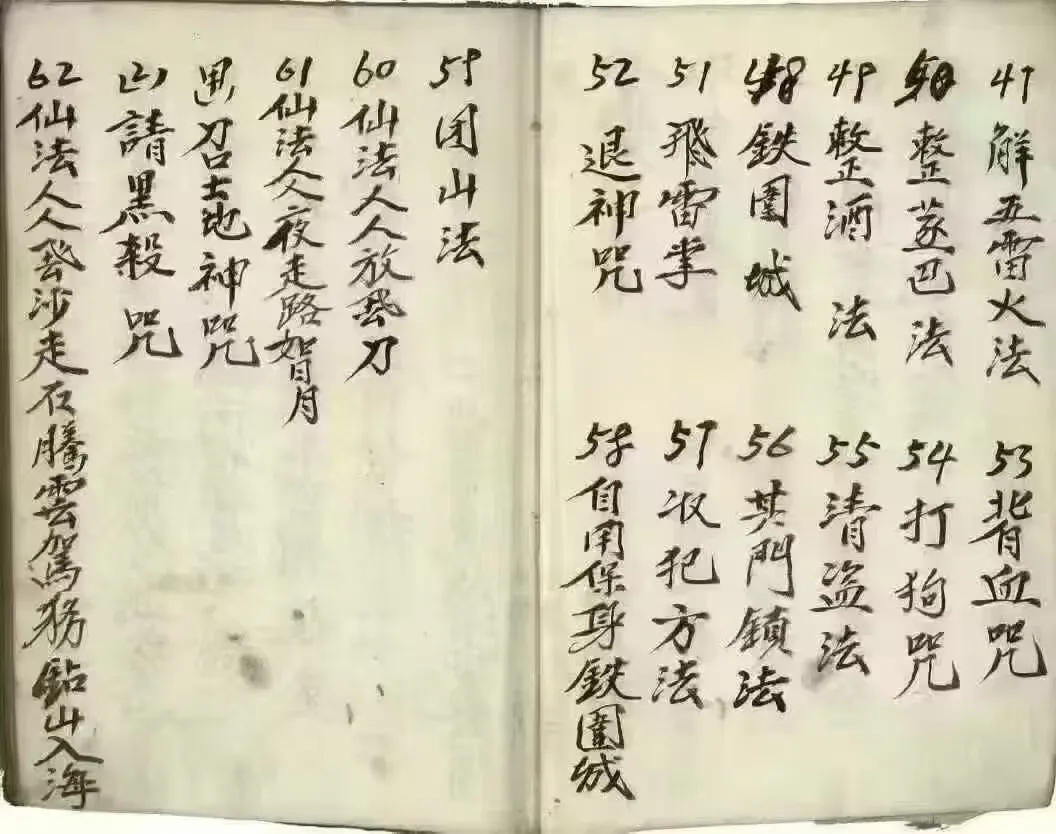 47 解五雷火法
整蒸巴法
49 整酒法
鉄圍城
51 飛雷掌
52 退神咒
53 背血咒
54 打狗咒
55 清盗法
56 其門鎖法
57 収犯方法
58 自用保身鉄圍城
59 团山法
60 仙法人人放飛刀
61 仙法人人夜走路智月
召土地神咒
請黑殺咒
62 仙法人人飛沙走石騰雲駕務鉆山入海